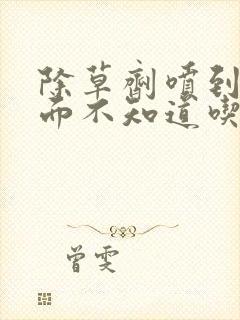 除草劑噴到
而不知道喫
曾雯